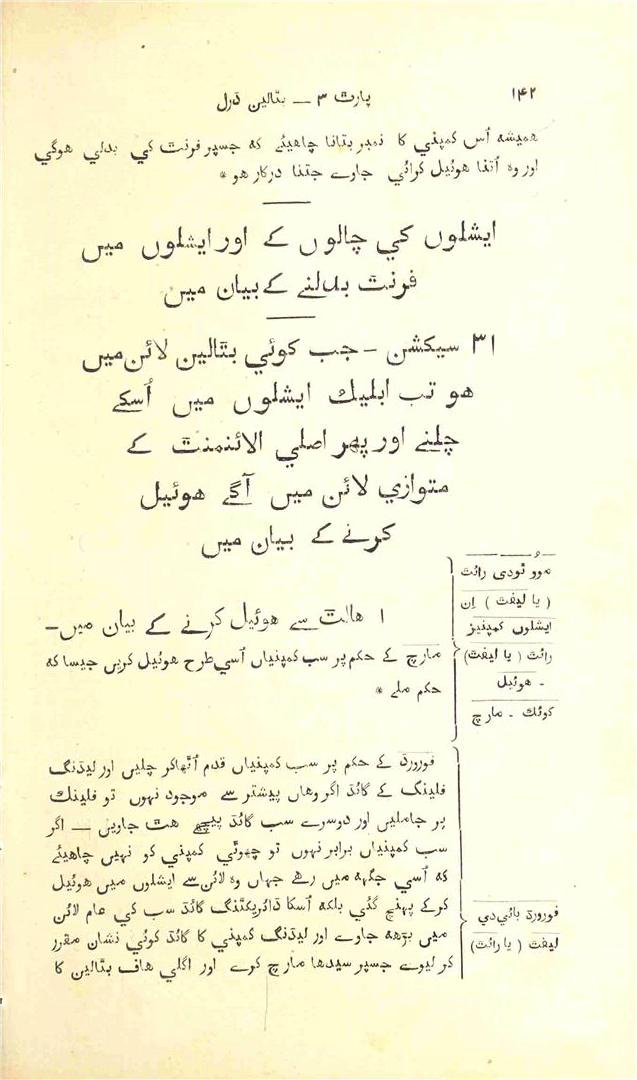 ۱۴۲
پارٹ ۳ — بٹالین ڈرل
همیشہ اُس کمپنی کا نمبر بتانا چاهیئے کہ جسپر فرنٹ کي بدلي هوگي
اور وہ اُتنا هوئیل کرائي جاوے جتنا درکار هو *
ایشلوں کي چالوں کے اور ایشلوں میں
فرنٹ بدلنے کے بیان میں
۳۱ سیکشن — جب کوئي بٹالین لائن میں
هو تب ابلیک ایشلوں میں اُسکے
چلنے اور پھر اصلي الائنمنٹ کے
متوازي لائن میں آگے هوئیل
کرنے کے بیان میں
۱ هالٹ سے هوئیل کرنے کے بیان میں—
مارچ کے حکم پر سب کمپنیاں اُسي طرح هوئیل کریں جیسا کہ
حکم ملے *
موُو ٹودي رائٹ
( یا لیفٹ ) اِن
ایشلوں کمپنیز
رائٹ ( یا لیفٹ)
- هوئیل
کوئک - مارچ
فورورڈ کے حکم پر سب کمپنیاں قدم اُٹھاکر چلیں اور لیڈنگ
فلینگ کے گائڈ اگر وهاں پیشتر سے موجود نہوں تو فلینک
پر جاملیں اور دوسرے سب گائڈ پیچھے هٹ جاویں — اگر
سب کمپنیاں برابر نہوں تو چھوٹي کمپني کو نہیں چاهیئے
کہ اُسي جگہہ میں رهے جہاں وہ لائن سے ایشلوں میں هوئیل
کرکے پہنچ گئي بلکہ اُسکا ڈائریکٹنگ گائڈ سب کي عام لائن
میں بڑھہ جاوے اور لیڈنگ کمپني کا گائڈ کوئي نشان مقرر
کر لیوے جسپر سیدھا مارچ کرے اور اگلي هاف بٹالین کا
فورورڈ بائي دي
لیفٹ ( یا رائٹ)